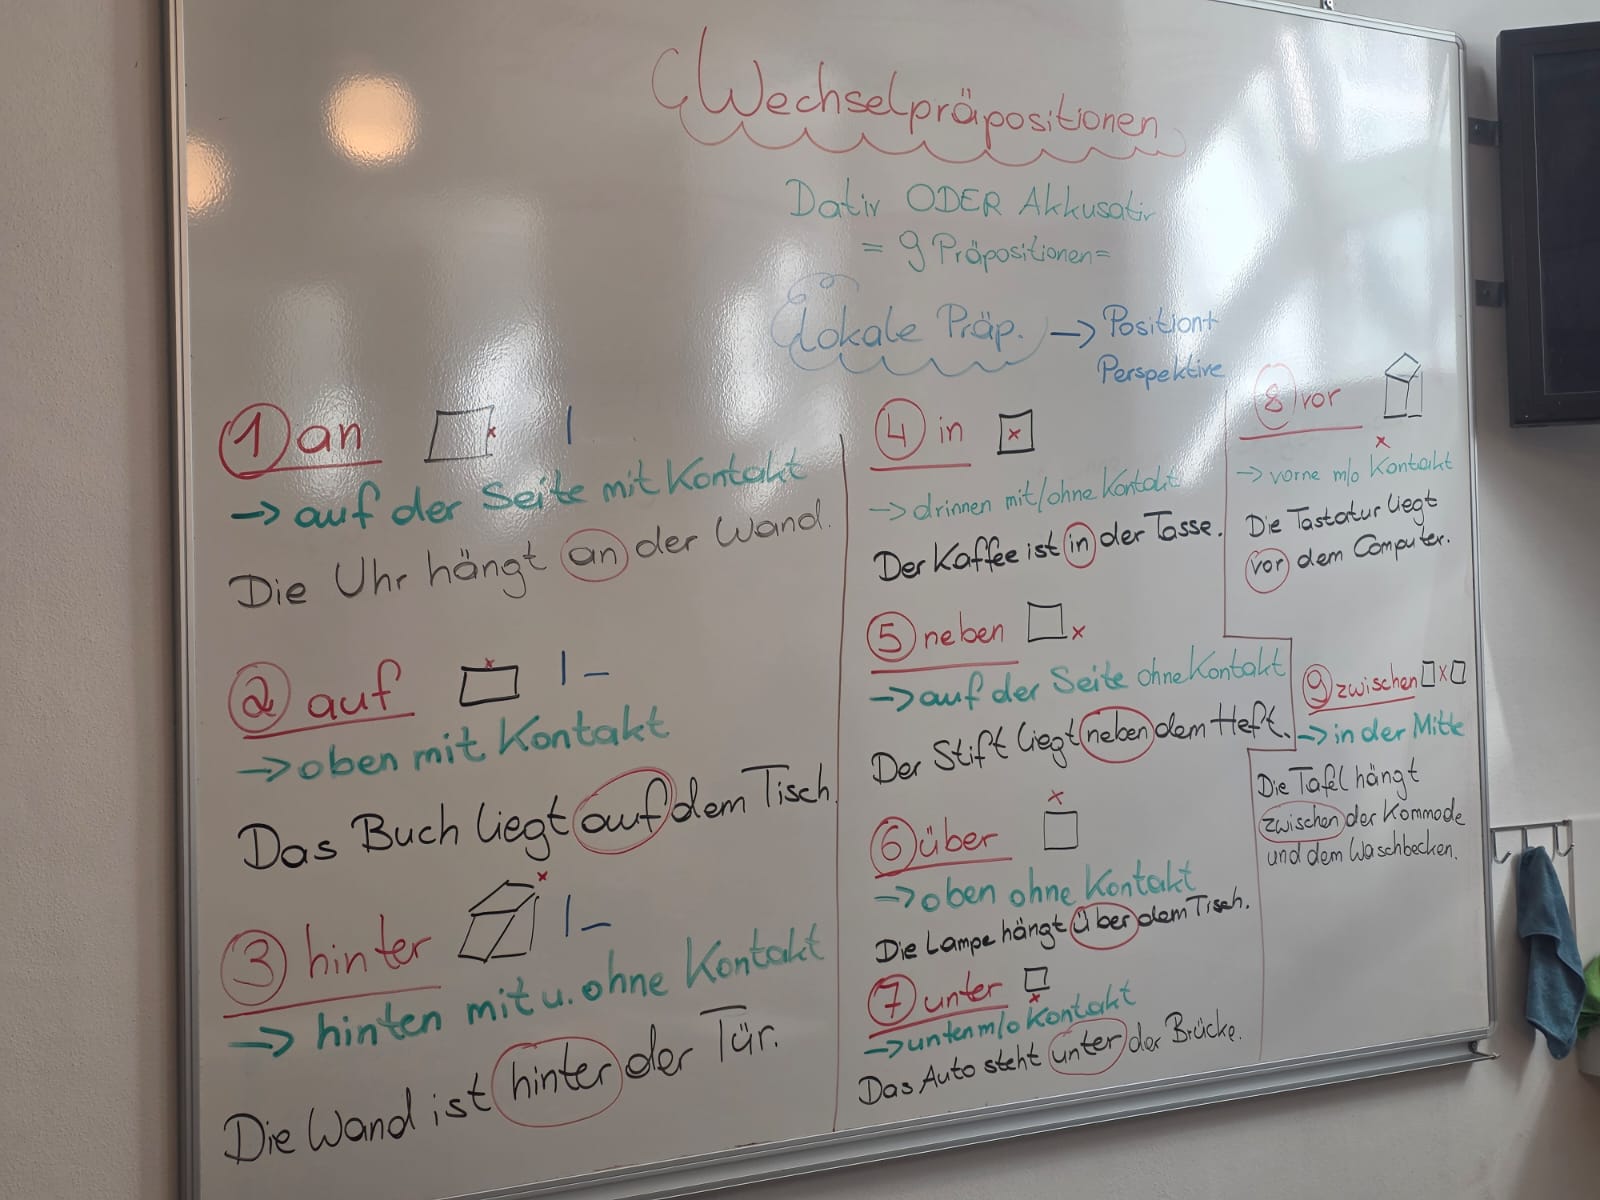 Wechselpräpositionen
Dativ ODER Akkusativ
= 9 Präpositionen =
Lokale Präp. → Position +
Perspektive
1 an
→ auf der Seite mit Kontakt
Die Uhr hängt an der Wand.
2 auf
→ oben mit Kontakt
Das Buch liegt auf dem Tisch.
3 hinter
→ hinten mit u. ohne Kontakt
Die Wand ist hinter der Tür.
4 in
→ drinnen mit/ohne Kontakt
Der Kaffee ist in der Tasse.
5 neben
→ auf der Seite ohne Kontakt
Der Stift liegt neben dem Heft.
6 über
→ oben ohne Kontakt
Die Lampe hängt über dem Tisch.
7 unter
→ unten m/o Kontakt
Das Auto steht unter der Brücke.
8 vor
→ vorne m/o Kontakt
Die Tastatur liegt
vor dem Computer.
9 zwischen
→ in der Mitte
Die Tafel hängt
zwischen der Kommode
und dem Waschbecken.